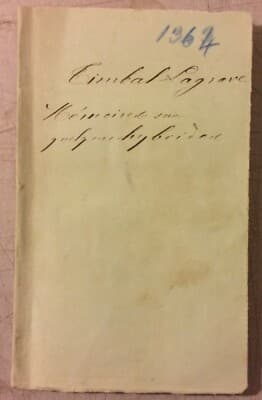 1964
Timbal Lagrave
Mémoires sur
quelques hybrides